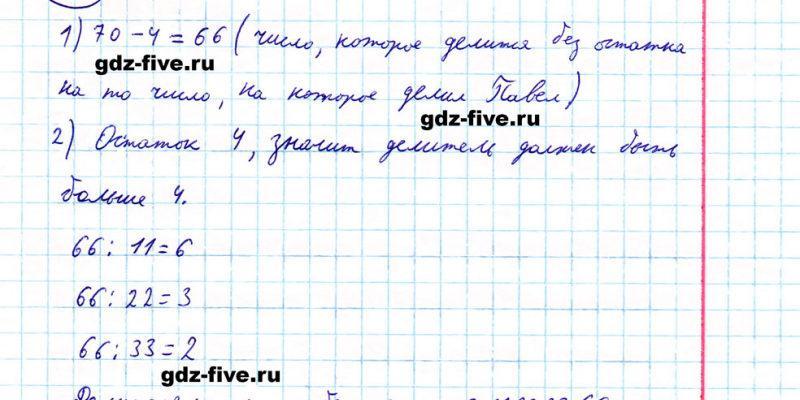 1) 70 - 4 = 66 (число, которое делится без остатка
gdz-five.ru
на то число, на которое делил Павел)
gdz-five.ru
2) Остаток 4, значит делитель должен быть
больше 4.
66 : 11 = 6
66 : 22 = 3
66 : 33 = 2
gdz-five.ru